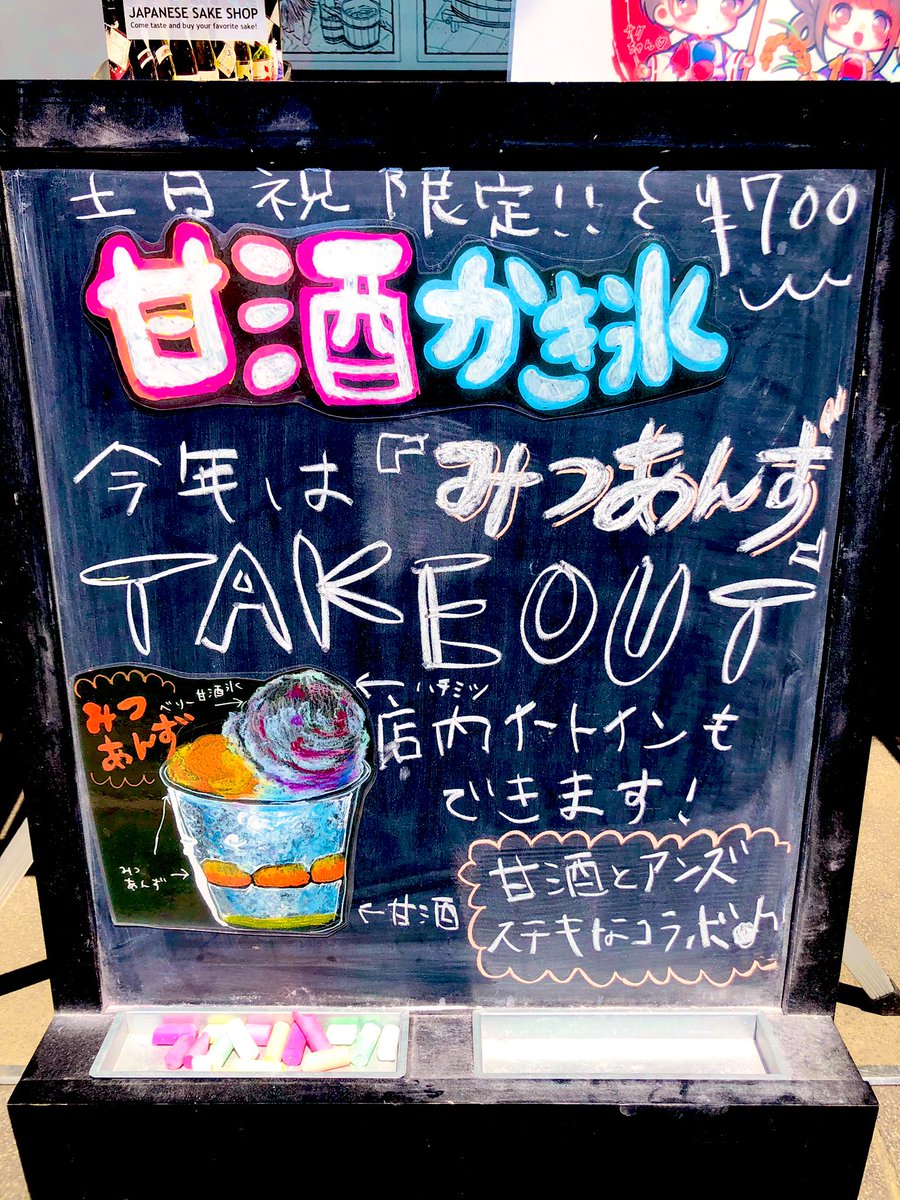 JAPANESE SAKE SHOP
Come taste and buy your favorite sake!
土日祝限定!! ¥700
甘酒かき氷
今年は『みつあんず』
TAKEOUT
みつ
あんず
ベリー甘酒氷
ハチミツ
店内イートインも
できます!
みつ
あんず
甘酒
甘酒とアンズ
ステキなコラボ